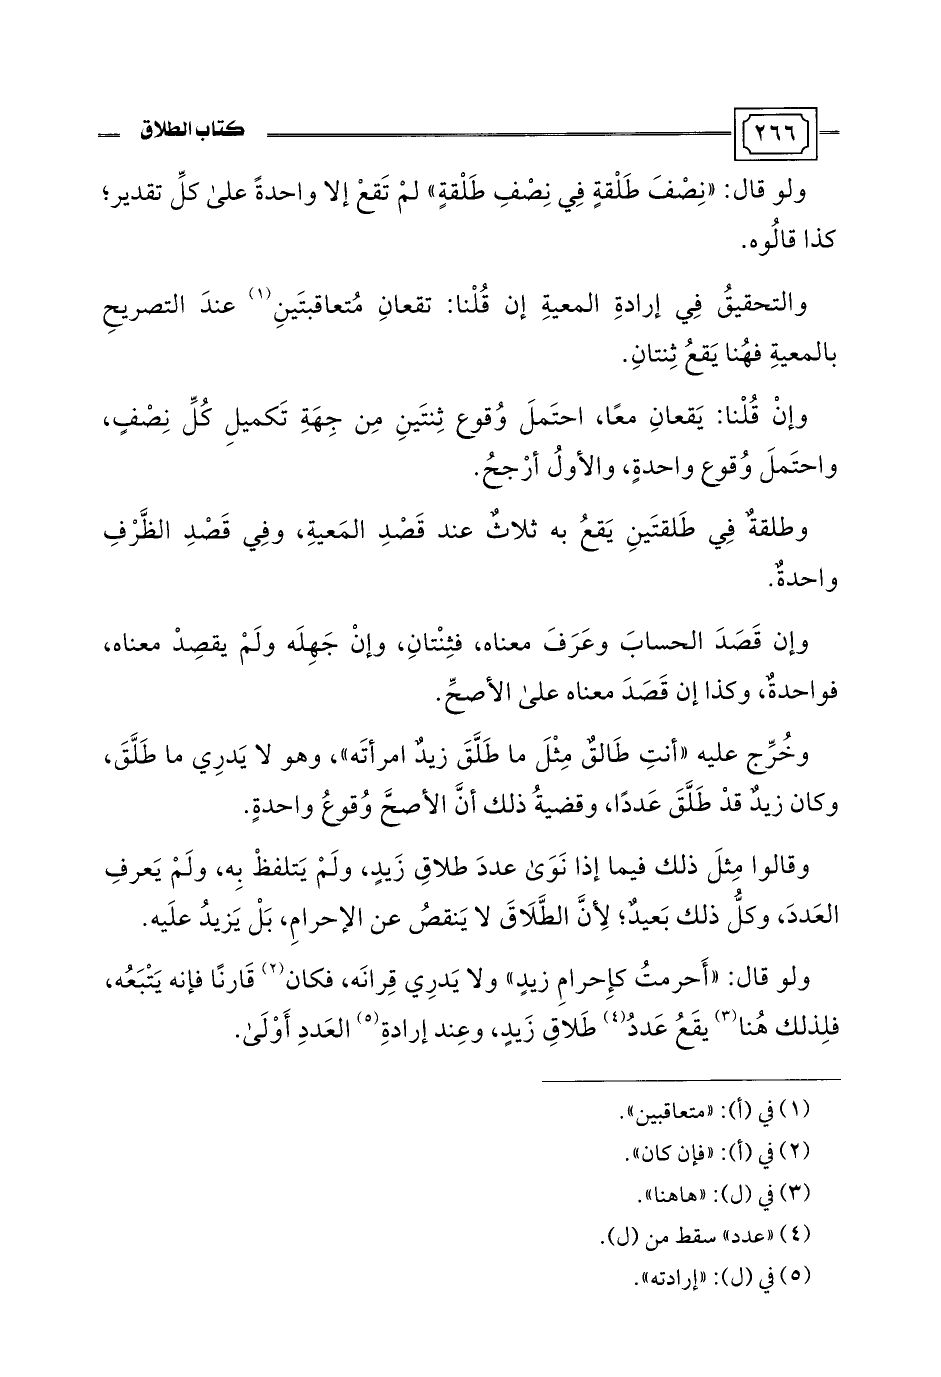 ٢٦٦ كتاب الطلاق
ولو قال: «نِصْفَ طَلْقةٍ فِي نِصْفِ طَلْقةٍ» لمْ تَقعْ إلا واحدةً علىٰ كلِّ تقدير؛
كذا قالُوه.
والتحقيقُ فِي إرادةِ المعيةِ إن قُلْنا: تقعانِ مُتعاقبتَينِ(١) عندَ التصريحِ
بالمعيةِ فهُنا يَقعُ ثِنتانِ.
وإنْ قُلْنا: يَقعانِ معًا، احتَملَ وُقوع ثِنتَينِ مِن جِهَةِ تَكميلِ كُلِّ نِصْفٍ،
واحتَملَ وُقوع واحدةٍ، والأولُ أرْجحُ.
وطلقةٌ فِي طَلقتَينِ يَقعُ به ثلاثٌ عند قَصْدِ المَعيةِ، وفِي قَصْدِ الظَّرْفِ
واحدةٌ.
وإن قَصَدَ الحسابَ وعَرَفَ معناه، فثِنْتانِ، وإنْ جَهِلَه ولَمْ يقصِدْ معناه،
فواحدةٌ، وكذا إن قَصَدَ معناه علىٰ الأصحِّ.
وخُرِّج عليه «أنتِ طَالقٌ مِثْلَ ما طَلَّقَ زيدٌ امرأتَه»، وهو لا يَدرِي ما طَلَّقَ،
وكان زيدٌ قدْ طَلَّقَ عَددًا، وقضيةُ ذلك أنَّ الأصحَّ وُقوعُ واحدةٍ.
وقالوا مِثلَ ذلك فيما إذا نَوَىٰ عددَ طلاقِ زَيدٍ، ولَمْ يَتلفظْ بِه، ولَمْ يَعرفِ
العَددَ، وكلُّ ذلك بَعيدٌ؛ لِأنَّ الطَّلَاقَ لا يَنقصُ عن الإحرامِ، بَلْ يَزيدُ علَيه.
ولو قال: «أَحرمتُ كإِحرامِ زيدٍ» ولا يَدرِي قِرانَه، فكان(٢) قَارنًا فإنه يَتْبَعُه،
فلِذلك هُنا(٣) يقَعُ عَددُ(٤) طَلاقِ زَيدٍ، وعِند إرادةِ(٥) العَددِ أَوْلَىٰ.
(١) في (أ): «متعاقبين».
(٢) في (أ): «فإن كان».
(٣) في (ل): «هاهنا».
(٤) «عدد» سقط من (ل).
(٥) في (ل): «إرادته».